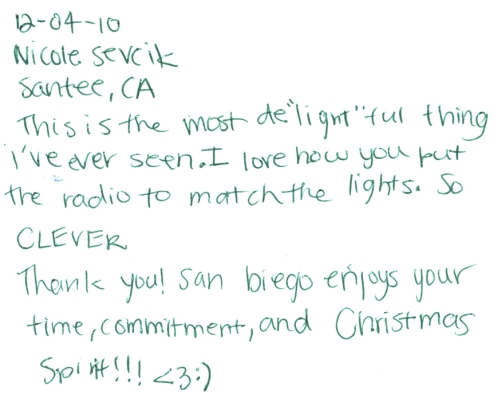 12-04-10
Nicole Sevcik
Santee, CA
This is the most de"light"ful thing
I've ever seen. I love how you put
the radio to match the lights. So
CLEVER
Thank you! San Diego enjoys your
time, commitment, and Christmas
Spirit!!! <3:)